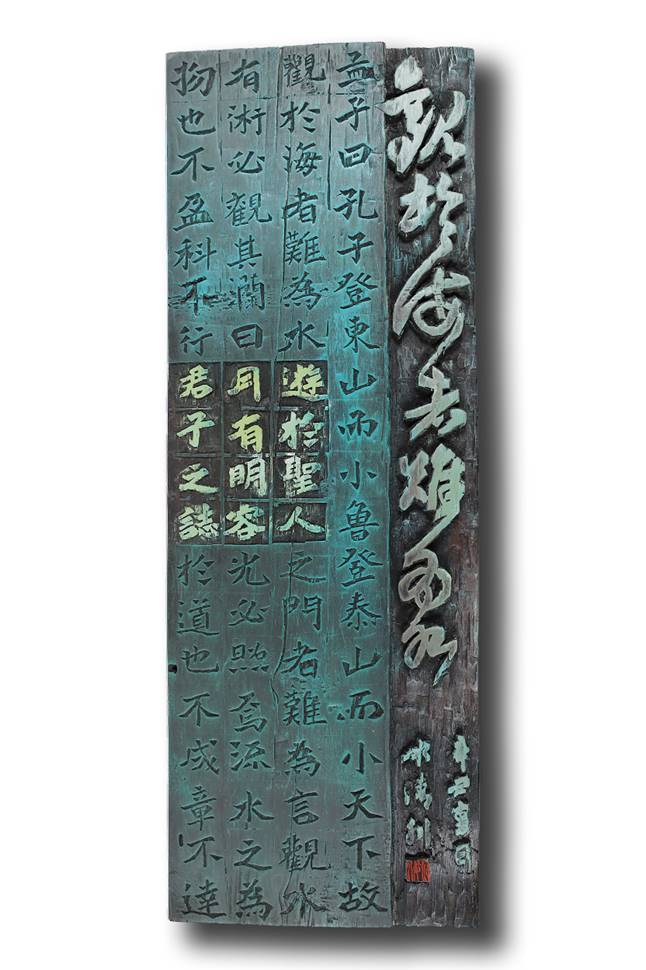 觀於海者難為水
孟子曰孔子登東山而小魯登泰山而小天下故
觀於海者難為水遊於聖人之門者難為言觀水
有術必觀其瀾日月有明容光必照焉源水之為
物也不盈科不行君子之誌於道也不成章不達
辛丑夏日